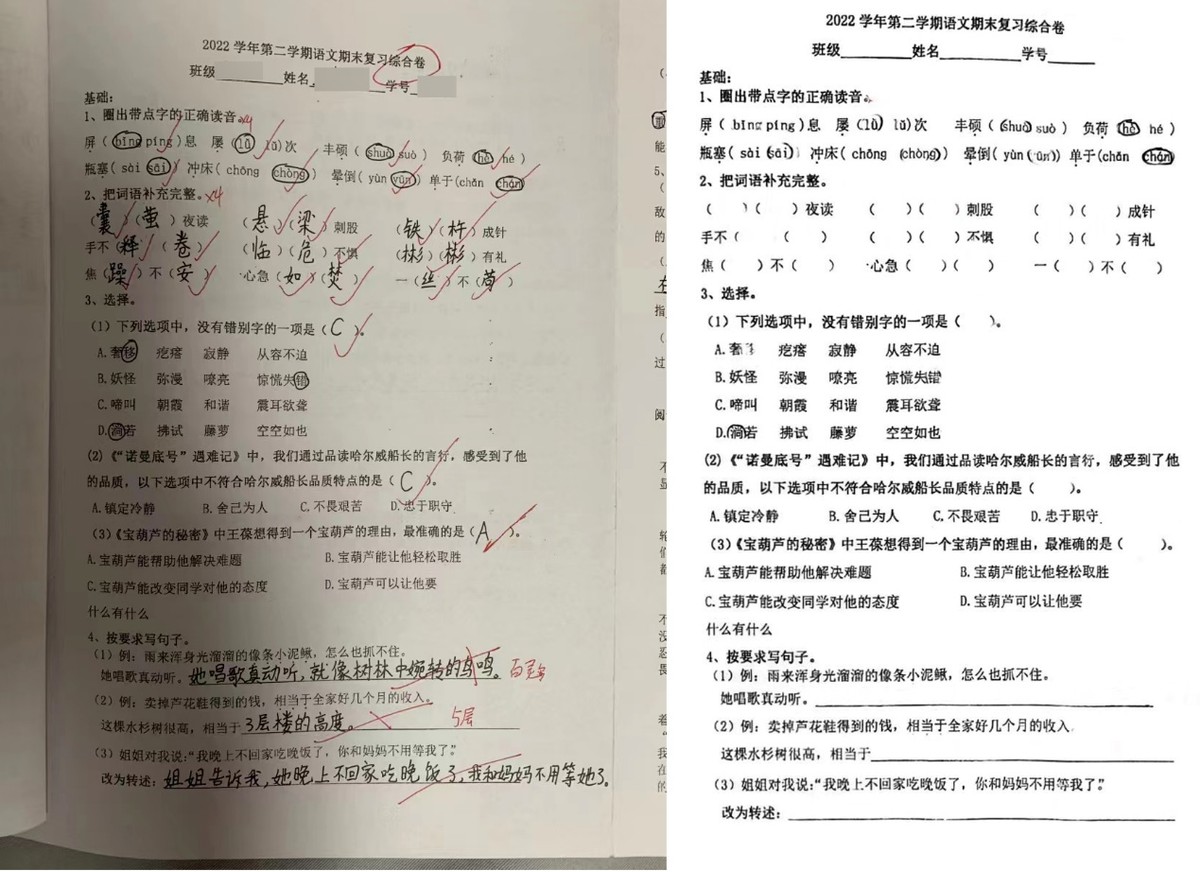 2022 学年第二学期语文期末复习综合卷
班级________姓名________学号______
基础:
1、圈出带点字的正确读音。x4
屏 ( bǐng píng )息 屡 ( lǚ lǔ)次 丰硕 ( shuò suò ) 负荷 ( hè hé )
瓶塞( sài sāi ) 冲床( chōng chòng ) 晕倒( yùn yūn ) 单于(chān chán )
2、把词语补充完整。x4
(囊)(萤)夜读 (悬)(梁)刺股 (铁)(杵)成针
手不(释)(卷) (临)(危)不惧 (彬)(彬)有礼
焦(躁)不(安) 心急(如)(焚) 一(丝)不(苟)
3、选择。
(1) 下列选项中，没有错别字的一项是 ( C )。
A.奢移 疙瘩 寂静 从容不迫
B.妖怪 弥漫 嘹亮 惊慌失错
C.啼叫 朝霞 和谐 震耳欲聋
D.倘若 拂试 藤萝 空空如也
(2)《“诺曼底号”遇难记》中，我们通过品读哈尔威船长的言行，感受到了他
的品质，以下选项中不符合哈尔威船长品质特点的是 ( C )。
A.镇定冷静 B.舍己为人 C.不畏艰苦 D.忠于职守
(3)《宝葫芦的秘密》中王葆想得到一个宝葫芦的理由，最准确的是( A )。
A.宝葫芦能帮助他解决难题 B.宝葫芦能让他轻松取胜
C.宝葫芦能改变同学对他的态度 D.宝葫芦可以让他要
什么有什么
4、按要求写句子。
(1) 例：雨来浑身光溜溜的像条小泥鳅，怎么也抓不住。
她唱歌真动听。她唱歌真动听，就像树林中婉转的鸟鸣。 百灵鸟
(2) 例：卖掉芦花鞋得到的钱，相当于全家好几个月的收入。
这棵水杉树很高，相当于3层楼的高度。 5层
(3) 姐姐对我说：“我晚上不回家吃晚饭了，你和妈妈不用等我了。”
改为转述：姐姐告诉我，她晚上不回家吃晚饭了，我和妈妈不用等她了。
2022 学年第二学期语文期末复习综合卷
班级________姓名________学号______
基础:
1、圈出带点字的正确读音。
屏 ( bǐng píng )息 屡 (lǚ lǔ)次 丰硕 ( shuò suò ) 负荷 ( hè hé )
瓶塞( sài sāi ) 冲床( chōng chòng) 晕倒( yùn yūn ) 单于(chān chán)
2、把词语补充完整。
( )( )夜读 ( )( )刺股 ( )( )成针
手不( ( ) ( )( )不惧 ( )( )有礼
焦( )不( ) 心急( )( ) 一( )不( )
3、选择。
(1) 下列选项中，没有错别字的一项是 ( )。
A.奢移 疙瘩 寂静 从容不迫
B.妖怪 弥漫 嘹亮 惊慌失错
C.啼叫 朝霞 和谐 震耳欲聋
D.倘若 拂试 藤萝 空空如也
(2)《“诺曼底号”遇难记》中，我们通过品读哈尔威船长的言行，感受到了他
的品质，以下选项中不符合哈尔威船长品质特点的是 ( )。
A.镇定冷静 B.舍己为人 C.不畏艰苦 D.忠于职守
(3)《宝葫芦的秘密》中王葆想得到一个宝葫芦的理由，最准确的是 ( )。
A.宝葫芦能帮助他解决难题 B.宝葫芦能让他轻松取胜
C.宝葫芦能改变同学对他的态度 D.宝葫芦可以让他要
什么有什么
4、按要求写句子。
(1) 例：雨来浑身光溜溜的像条小泥鳅，怎么也抓不住。
她唱歌真动听。________
(2) 例：卖掉芦花鞋得到的钱，相当于全家好几个月的收入
这棵水杉树很高，相当于________
(3) 姐姐对我说：“我晚上不回家吃晚饭了，你和妈妈不用等我了。”
改为转述：________